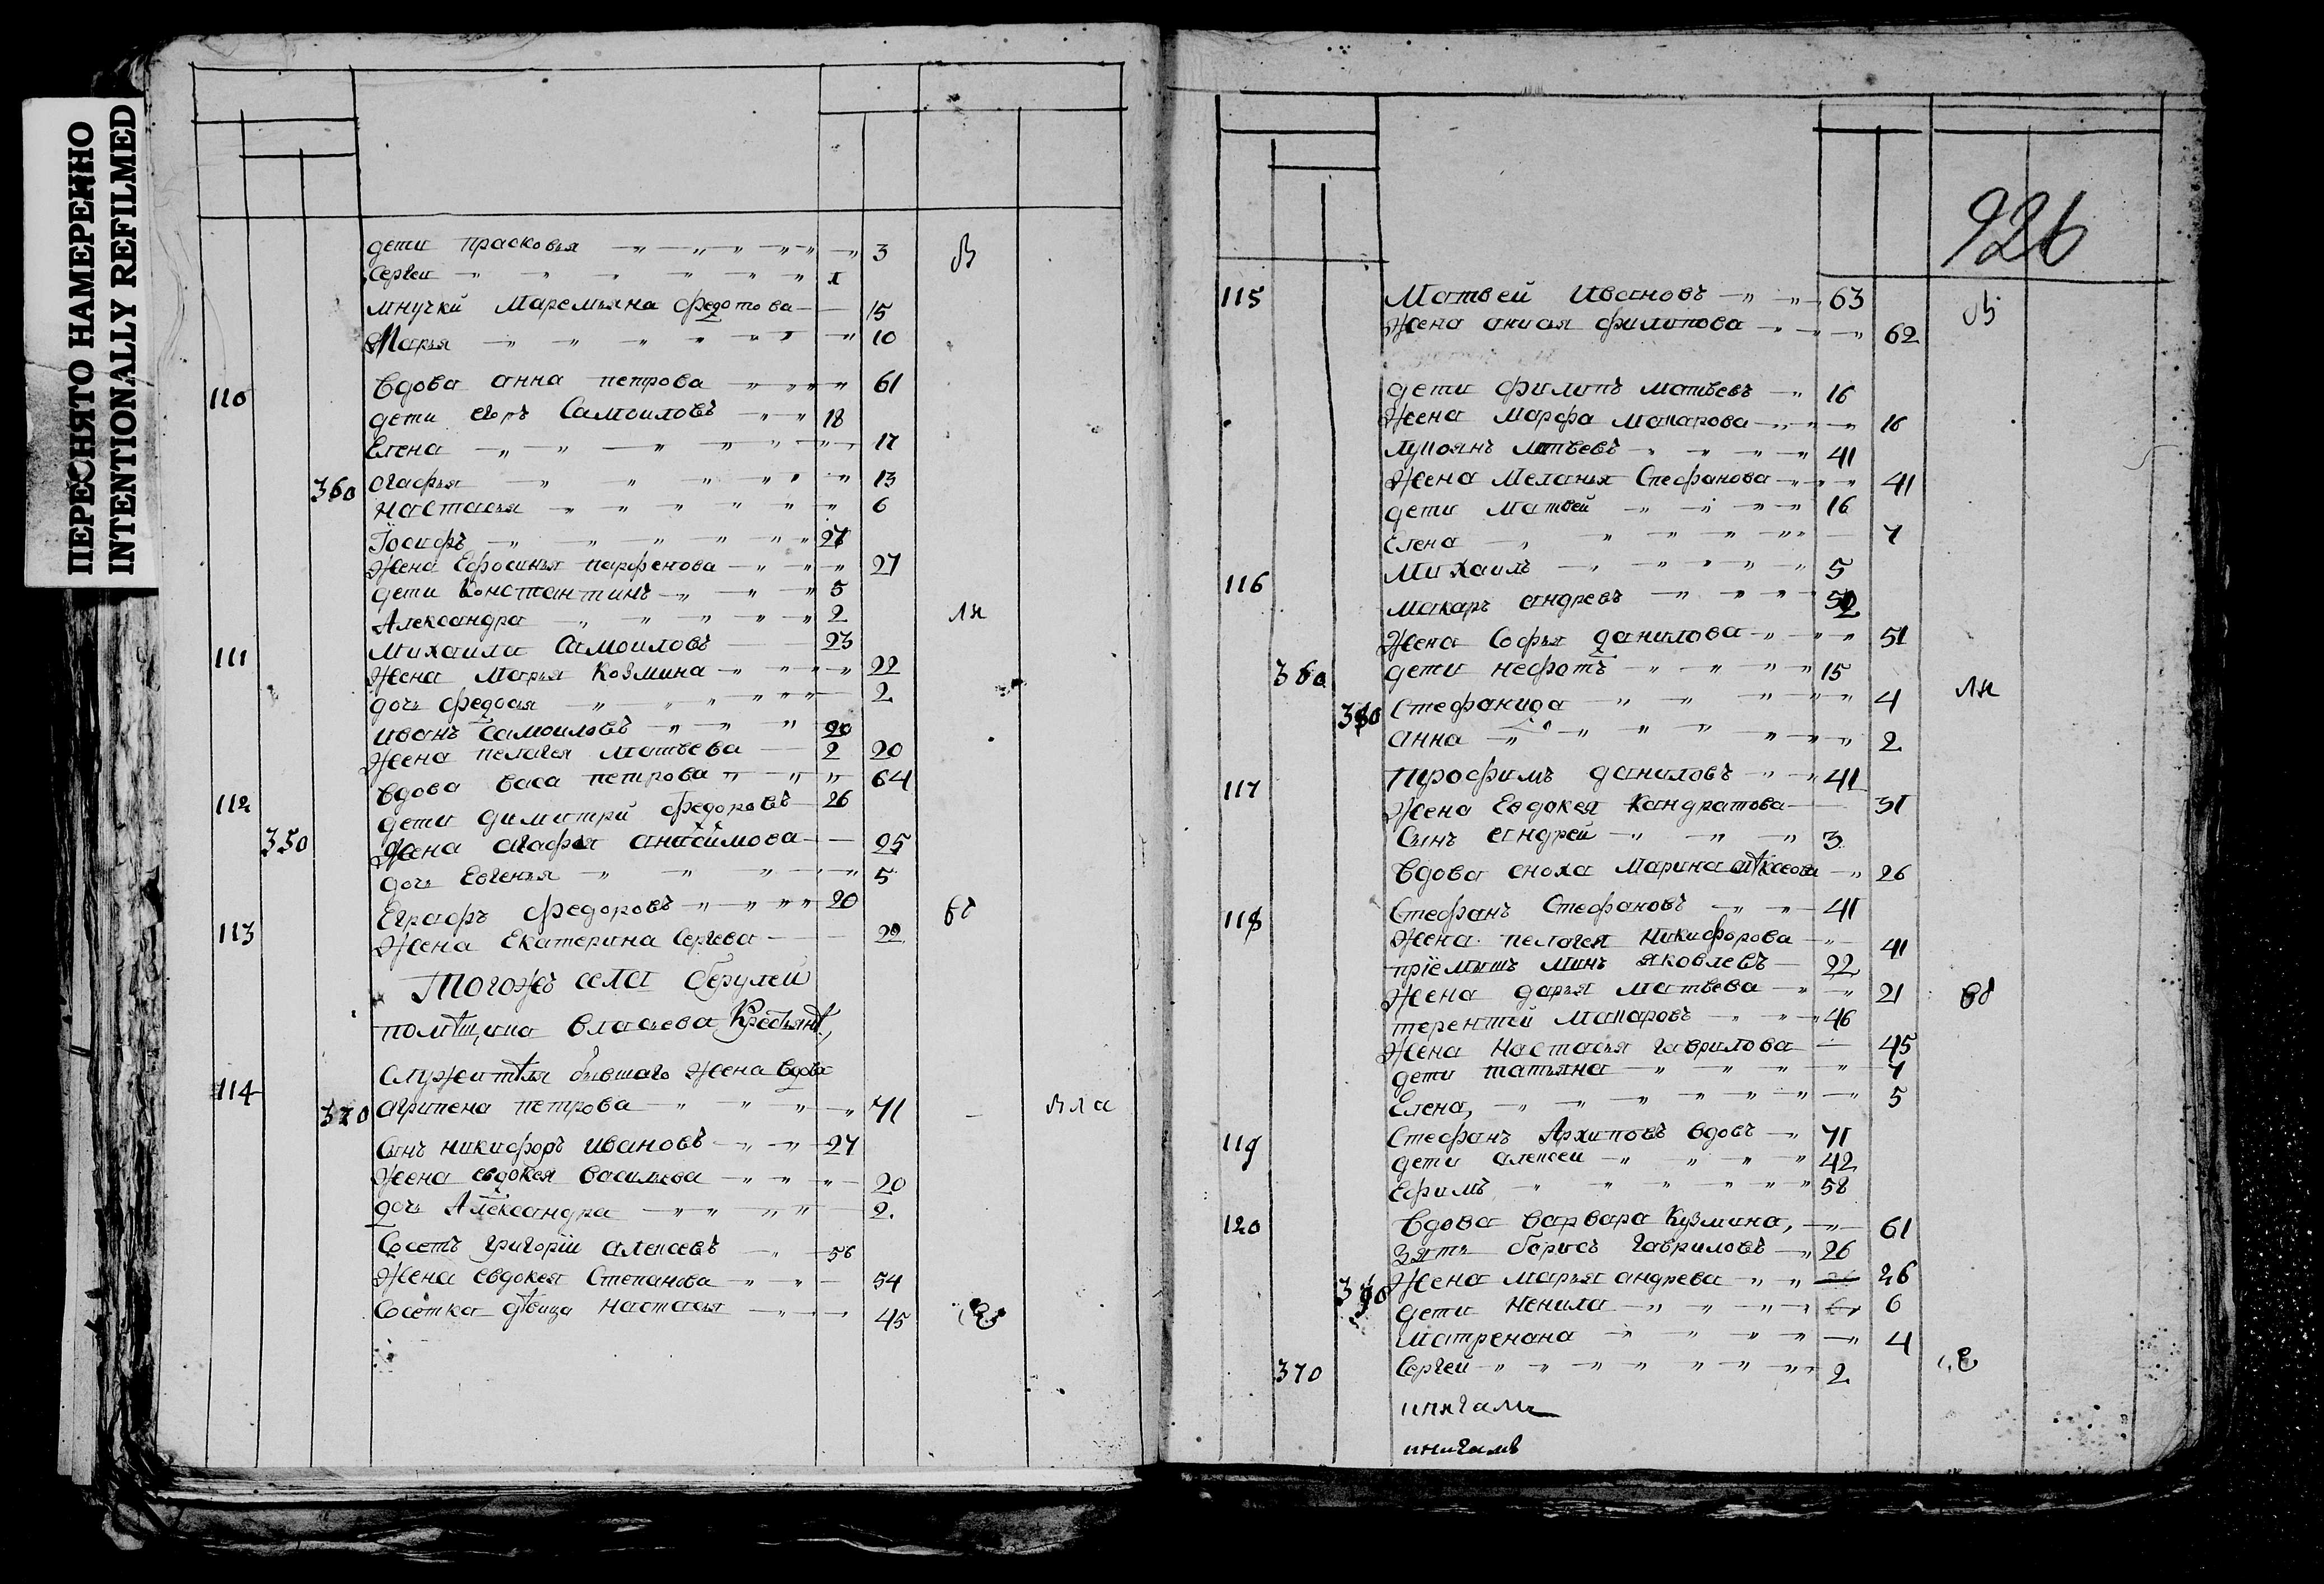 ПЕРЕСНЯТО НАМЕРЕННО
INTENTIONALLY REFILMED
дети прасковья 3 в
Сергеи 1
мнучки Маремьяна Федотова 15
Марья 10
110 вдова анна петрова 61
дети егоръ Самоиловъ 18
Елена 17
360 огафья 13
настасья 6
Iосифъ 27
Жена Ефросинья парфенова 27
дети Константинъ 5
Александра 2 ли
111 Михаила Самоиловъ 23
Жена Марья Козмина 22
дочь федосья 2
иванъ Самоиловъ 20
Жена пелагея матвева 2 20
вдова васа петрова 64
112 дети димитри федоровъ 26
350 Жена агафья 25
дочь Евгенья 5
Еграфъ федоровъ 20
113 Жена Екатерина Сергева 22
Тогожъ села
помѣщика власьева Крестьянѣ,
служителя бывшаго Жена вдова
114 370 агрипена петрова 71 вла
Сынъ никифоръ ивановъ 27
Жена евдокея васильева 20
дочь Александра 2.
григорiи алексевъ 56
Жена евдокея Степанова 54
дѣвица настасья 45
926
115 Матвеи ивановъ 63
Жена анисья филипова 62
дети филипъ матвевъ 16
Жена марфа макарова 16
лупоянъ 41
Жена Меланья Стефанова 41
дети матвей 16
Елена 7
Михаилъ 5
116 макаръ андревъ 52
Жена Софья данилова 51
360 дети нефотъ 15
380 Стефанида 4 ли
анна 2
117 трофимъ даниловъ 41
Жена Евдокея Кандратова 31
Сынъ андрей 3
вдова сноха марина 26
118 Стефанъ Стефановъ 41
Жена пелагея никифорова 41
прiемышъ минъ яковлевъ 22
Жена дарья матвева 21
терентей макаровъ 46
Жена настасья гаврилова 45
дети татьяна 7
Елена, 5
119 Стефанъ Архиповъ вдовъ 71
дети алексеи 42
Ефимъ 58
120 вдова варвара Кузмина, 61
зять борисъ гавриловъ 26
390 Жена марья андрева 26
дети ненила 6
матренана 4
370 Сергеи 2